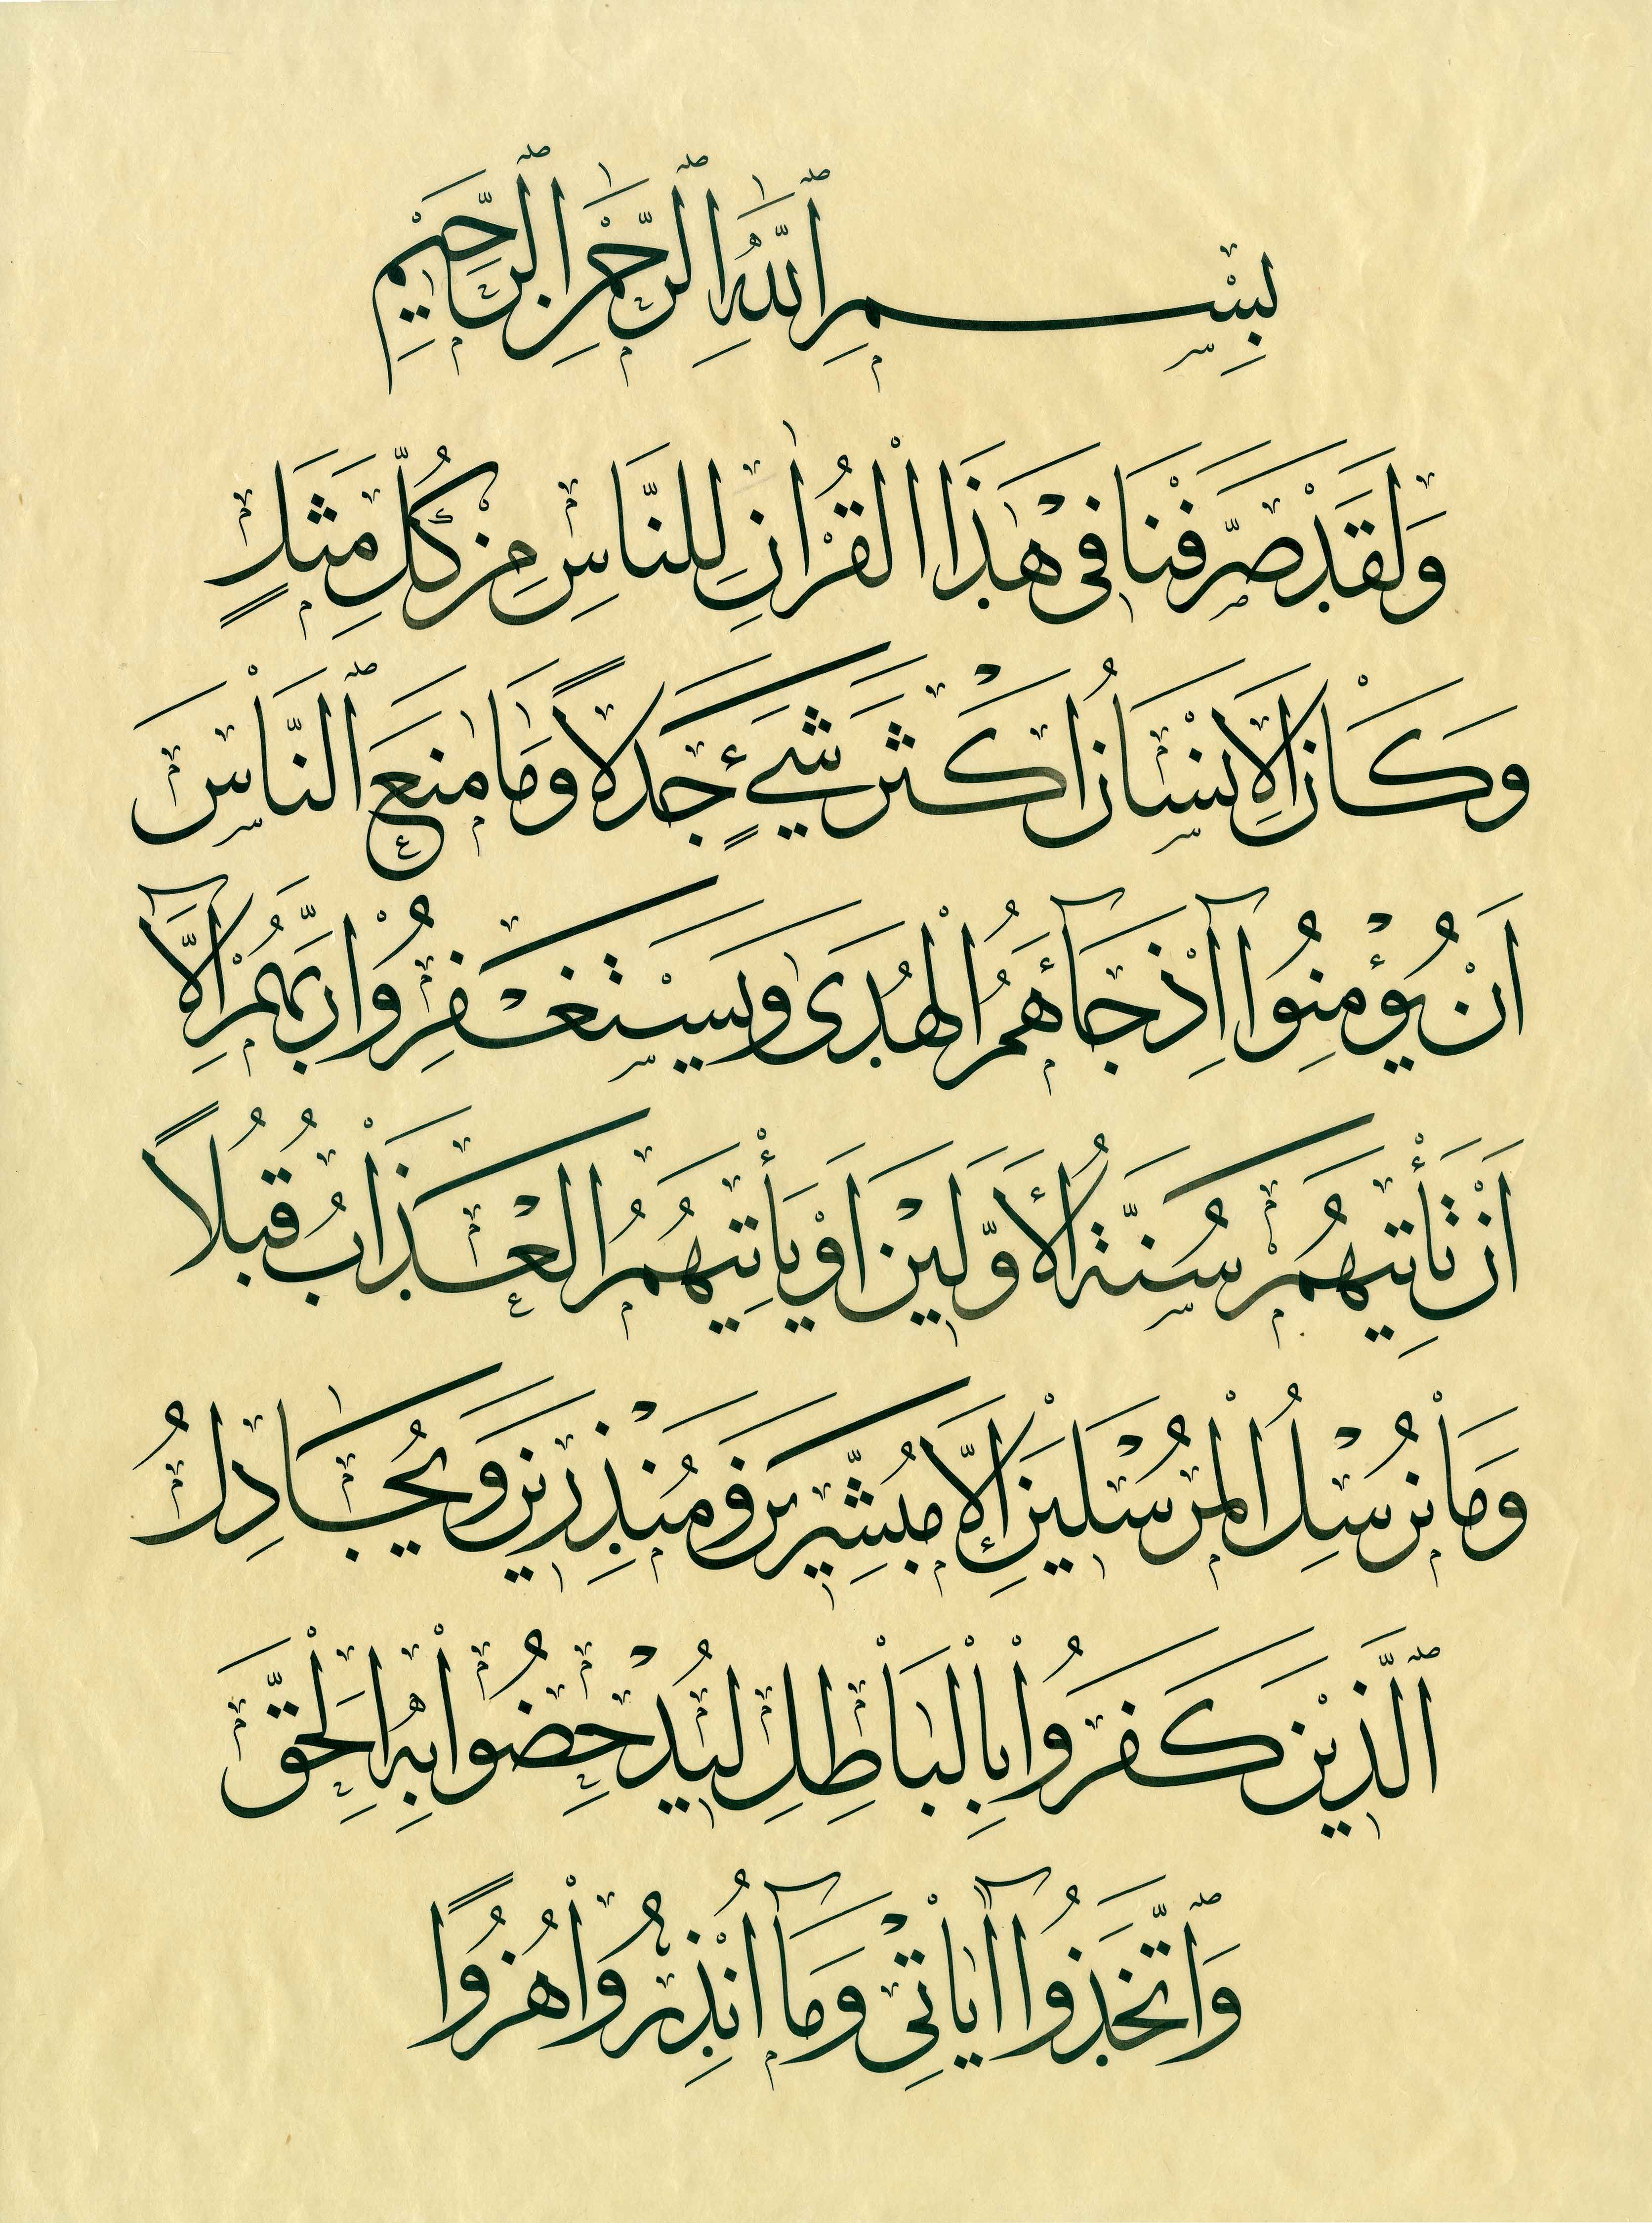 بِسْمِ ٱللَّهِ ٱلرَّحْمٰنِ ٱلرَّحِيمِ
وَلَقَدْ صَرَّفْنَا فِى هٰذَا الْقُرْاٰنِ لِلنَّاسِ مِنْ كُلِّ مَثَلٍ
وَكَانَ الْاِنْسَانُ اَكْثَرَ شَىْءٍ جَدَلًا وَمَا مَنَعَ ٱلنَّاسَ
اَنْ يُؤْمِنُوا اِذْ جَآءَهُمُ الْهُدٰى وَيَسْتَغْفِرُوا رَبَّهُمْ اِلَّآ
اَنْ تَأْتِيَهُمْ سُنَّةُ الْأَوَّلِينَ اَوْ يَأْتِيَهُمُ الْعَذَابُ قُبُلًا
وَمَا نُرْسِلُ الْمُرْسَلِينَ اِلَّا مُبَشِّرِينَ وَمُنْذِرِينَ وَيُجَادِلُ
ٱلَّذِينَ كَفَرُوا بِالْبَاطِلِ لِيُدْحِضُوا بِهِ الْحَقَّ
وَٱتَّخَذُوا آيَاتِى وَمَآ اُنْذِرُوا هُزُوًا